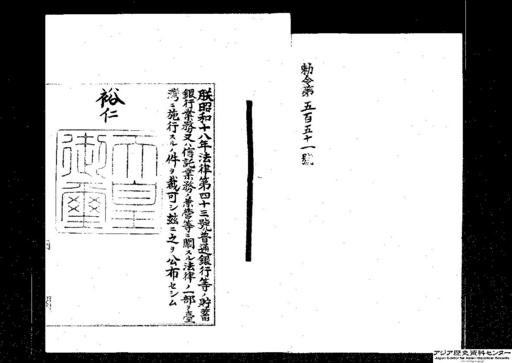 勅令第五百五十一號
朕昭和十八年法律第四十三號普通銀行等ノ貯蓄
銀行業務又ハ信託業務ノ兼営等ニ關スル法律ノ一部ヲ臺
灣ニ施行スルノ件ヲ裁可シ玆ニ之ヲ公布セシム
裕仁
天皇
御璽
アジア歴史資料センター
Japan Center for Asian Historical Records